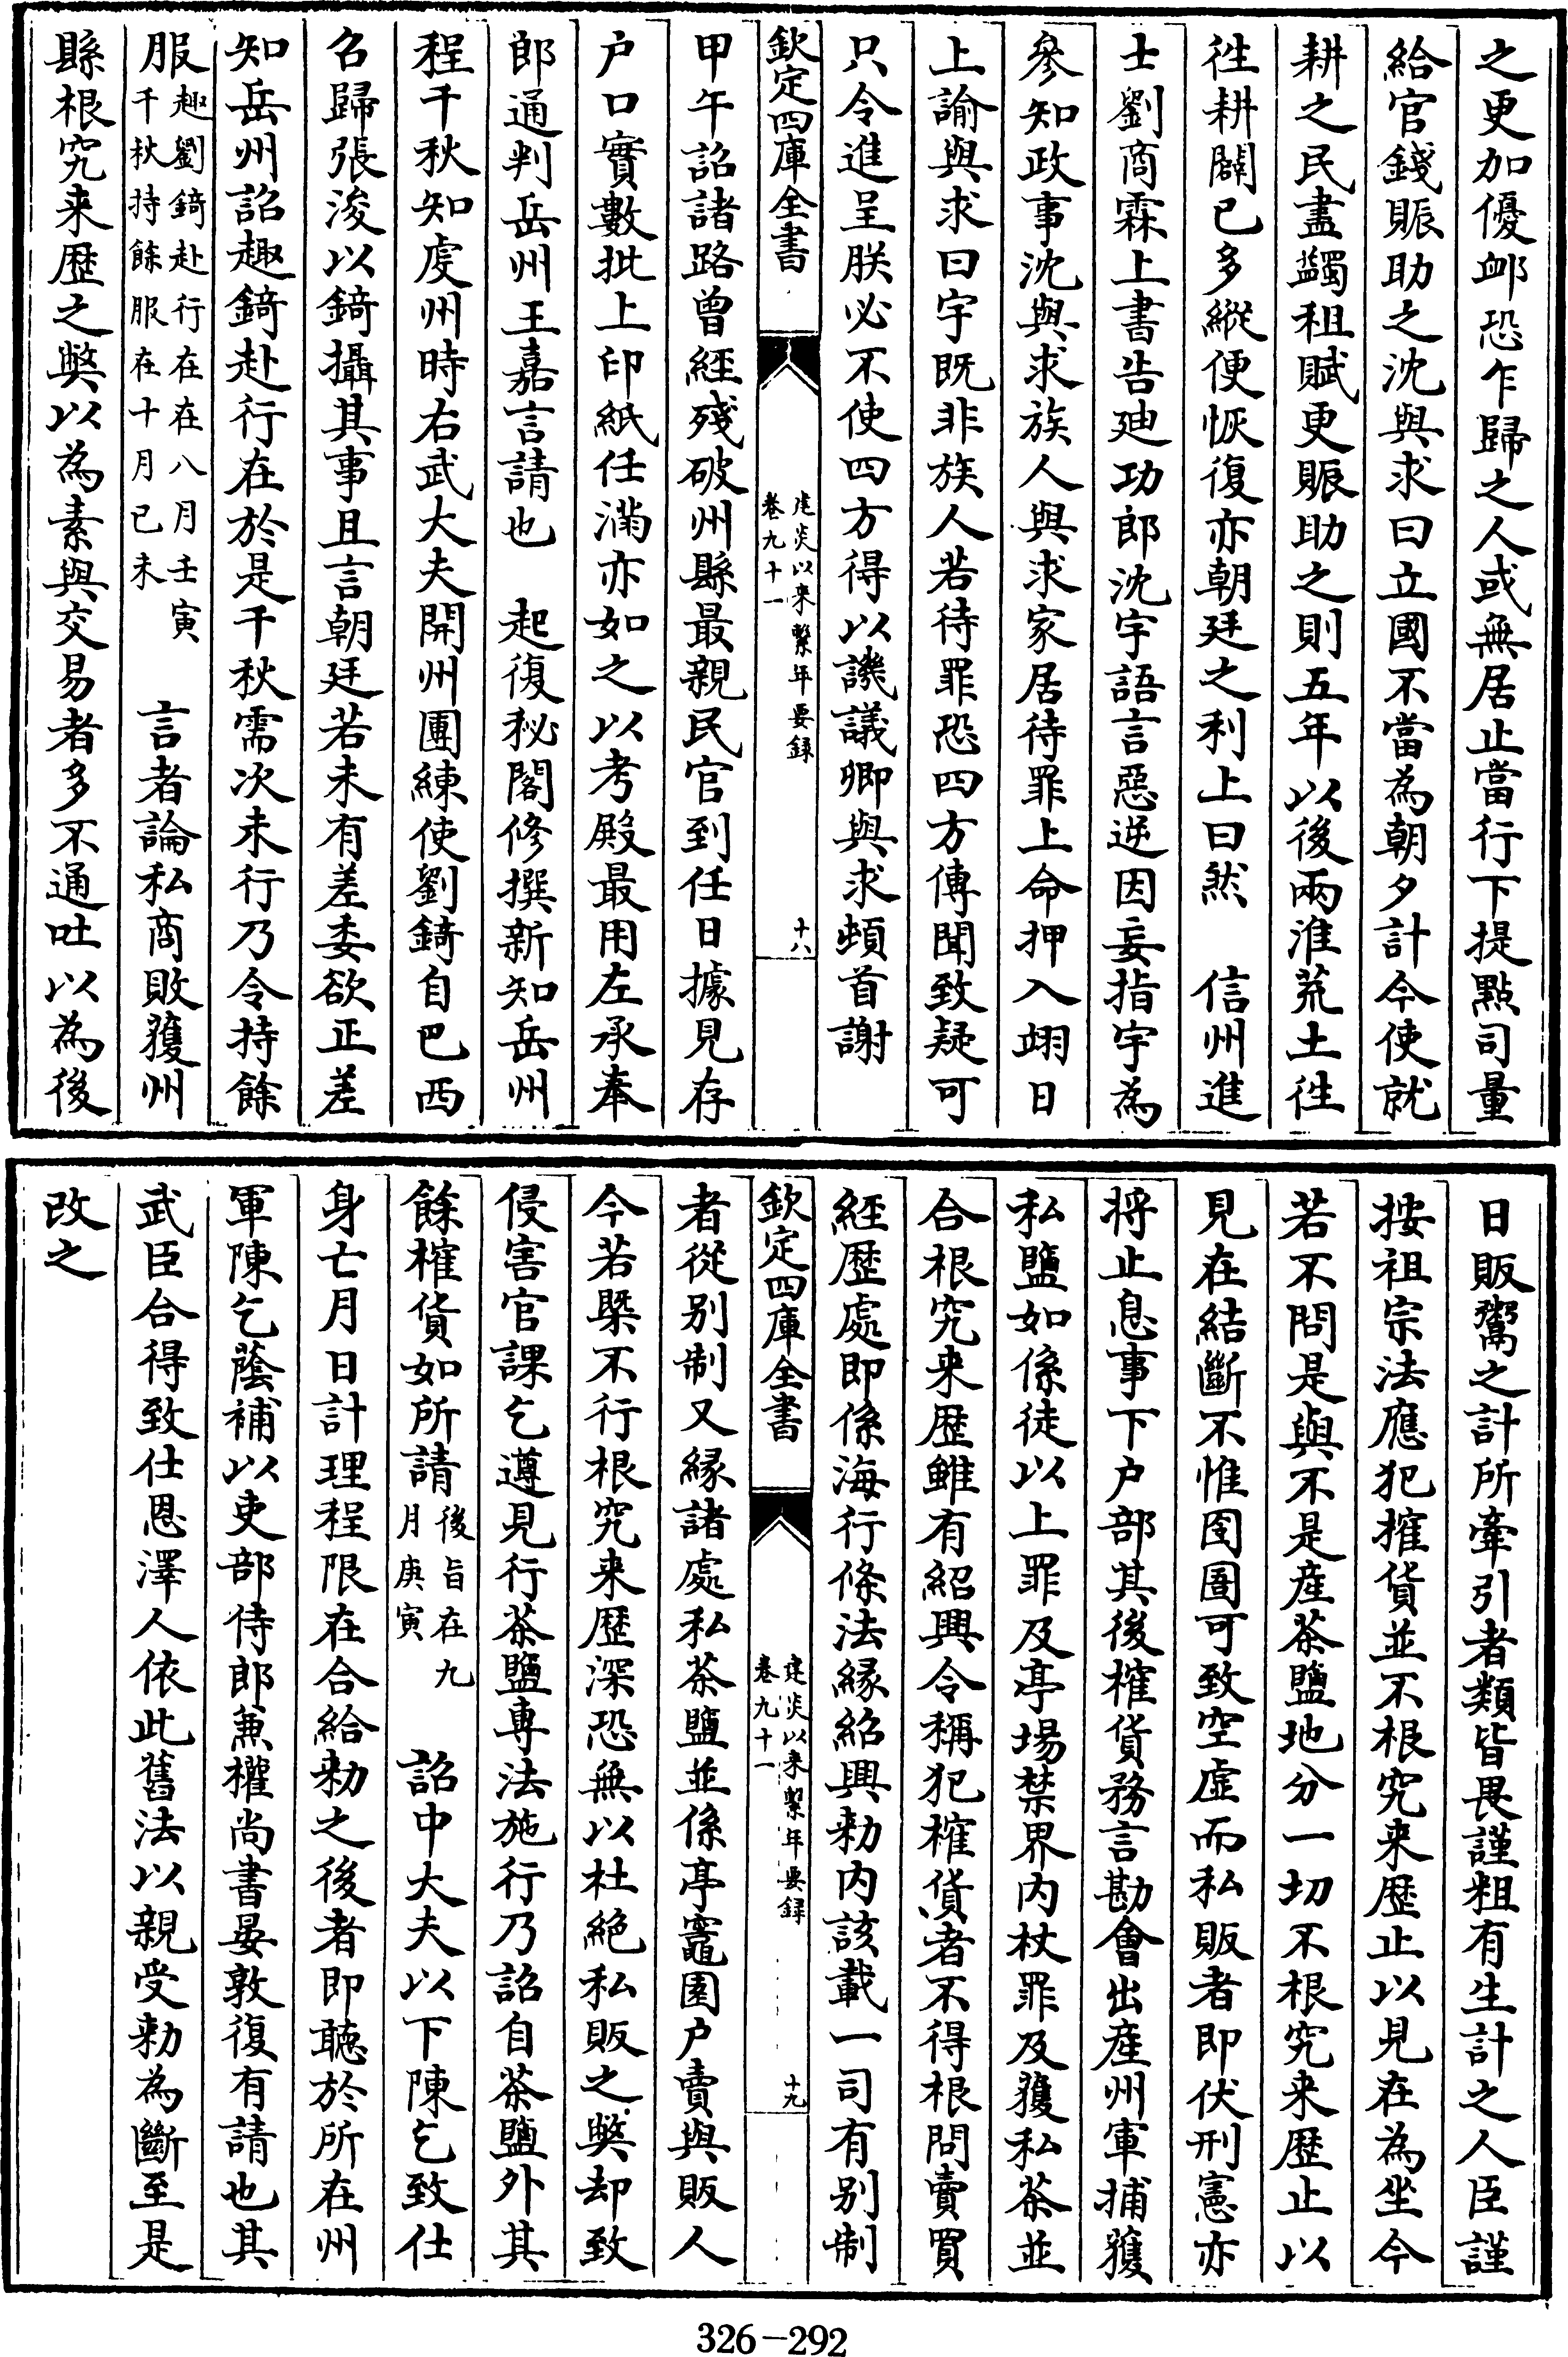 之更加優䘏恐乍歸之人或無居止當行下提㸃司量
給官錢賑助之沈與求曰立國不當為朝夕計今使就
耕之民盡蠲租賦更賑助之則五年以後兩淮荒土徃
徃耕闢已多縱便恢復亦朝廷之利上曰然　信州進
士劉商霖上書告廸功郎沈宇語言惡逆因妄指宇為
參知政事沈與求族人與求家居待罪上命押入翊日
上諭與求曰宇既非族人若待罪恐四方傳聞致疑可
只令進呈朕必不使四方得以譏議卿與求頓首謝
欽定四庫全書
建炎以来繫年要録
卷九十一
十八
甲午詔諸路曾經殘破州縣最親民官到任日據見存
户口實數批上印紙任滿亦如之以考殿最用左承奉
郎通判岳州王嘉言請也　起復秘閣修撰新知岳州
程千秋知虔州時右武大夫開州團練使劉錡自巴西
名歸張浚以錡攝其事且言朝廷若未有差委欲正差
知岳州詔趣錡赴行在於是千秋需次未行乃令持餘
服趣劉錡赴行在在八月壬寅千秋持餘服在十月已未　言者論私商敗獲州
縣根究来歴之弊以為素與交易者多不通吐以為後
日販鬻之計所牽引者類皆畏謹粗有生計之人臣謹
按祖宗法應犯搉貨並不根究来歴止以見在為坐今
若不問是與不是産茶鹽地分一切不根究来歴止以
見在結斷不惟囹圄可致空虛而私販者即伏刑憲亦
將止息事下户部其後榷貨務言勘會出産州軍捕獲
私鹽如係徒以上罪及亭場禁界内杖罪及獲私茶並
合根究来歴雖有紹興令稱犯榷貨者不得根問賣買
經歴處即係海行條法緣紹興勅内該載一司有别制
欽定四庫全書
建炎以来繫年要録
卷九十一
十九
者從别制又緣諸處私茶鹽並係亭竈園户賣與販人
今若槩不行根究来歴深恐無以杜絶私販之弊却致
侵害官課乞遵見行茶鹽專法施行乃詔自茶鹽外其
餘榷貨如所請後旨在九月庚寅　詔中大夫以下陳乞致仕
身亡月日計理程限在合給勅之後者即聴於所在州
軍陳乞蔭補以吏部侍郎兼權尚書晏敦復有請也其
武臣合得致仕恩澤人依此舊法以親受勅為斷至是
改之
326-292